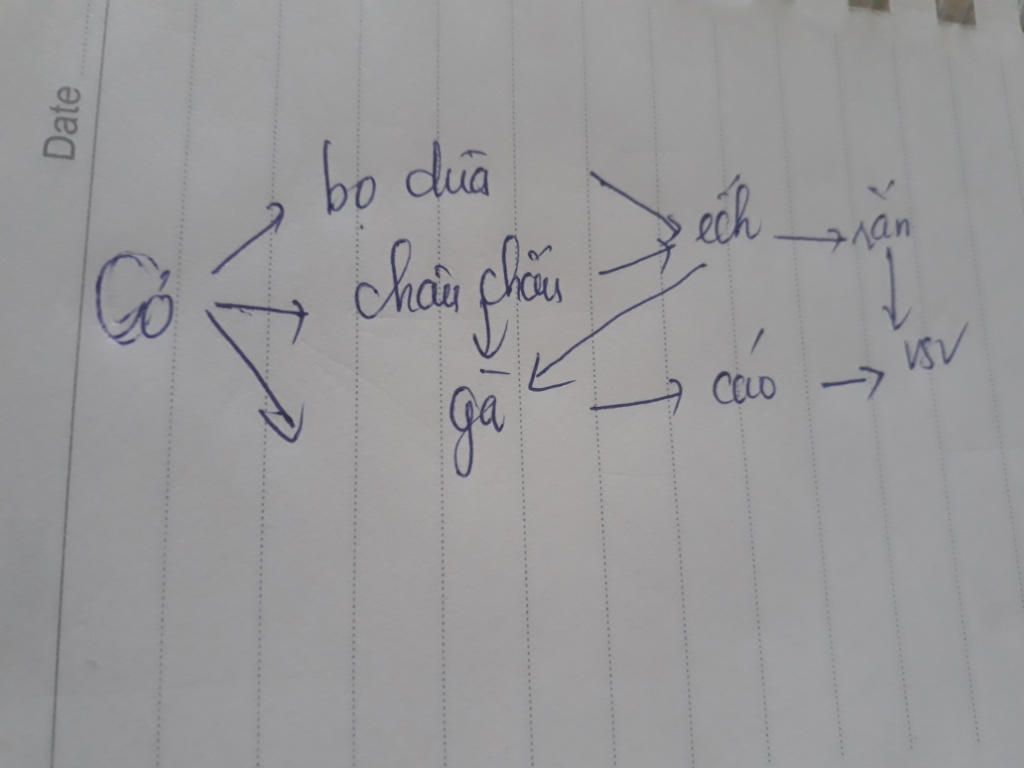 Date
bọ dừa
ếch → rắn
Cỏ
châu chấu
gà → cáo → VSV